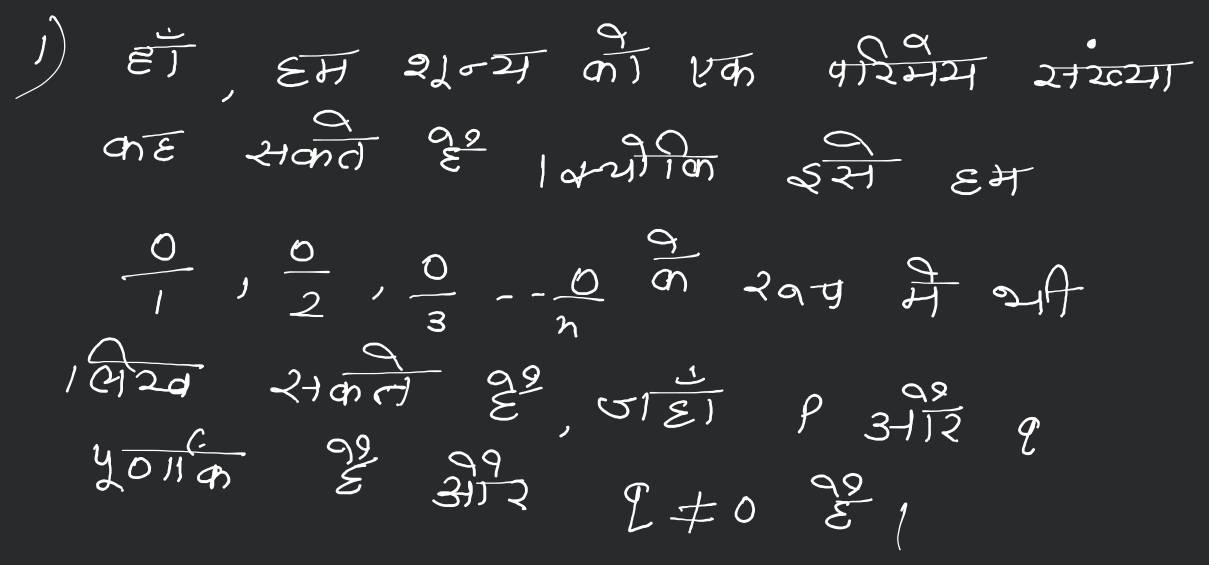 1) हाँ, हम शून्य को एक परिमेय संख्या
कह सकते है । क्योकि इसे हम
0/1, 0/2, 0/3 -- 0/n के रूप मे भी
लिख सकते है, जहाँ p और q
पूर्णांक है और q ≠ 0 है।